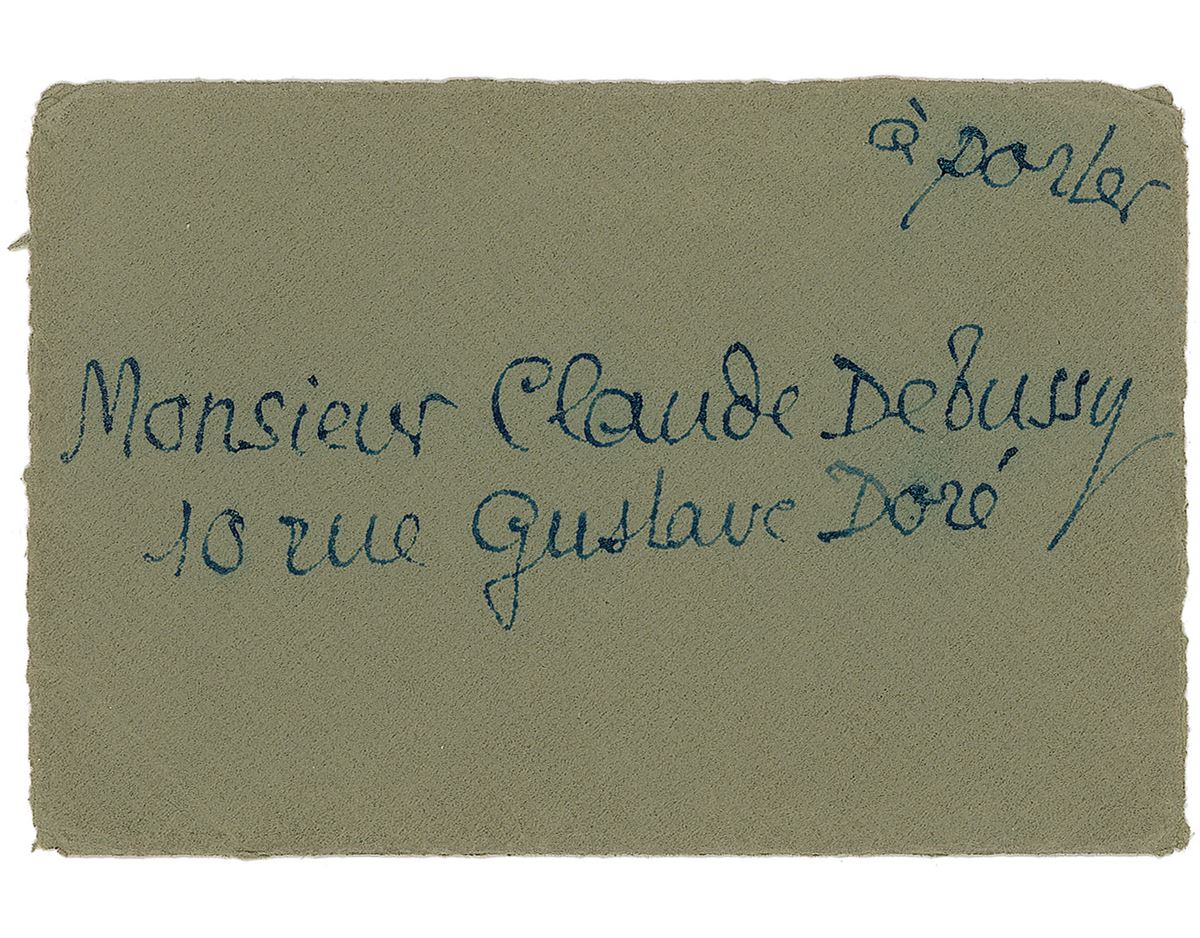 à porter
Monsieur Claude Debussy
10 rue Gustave Doré